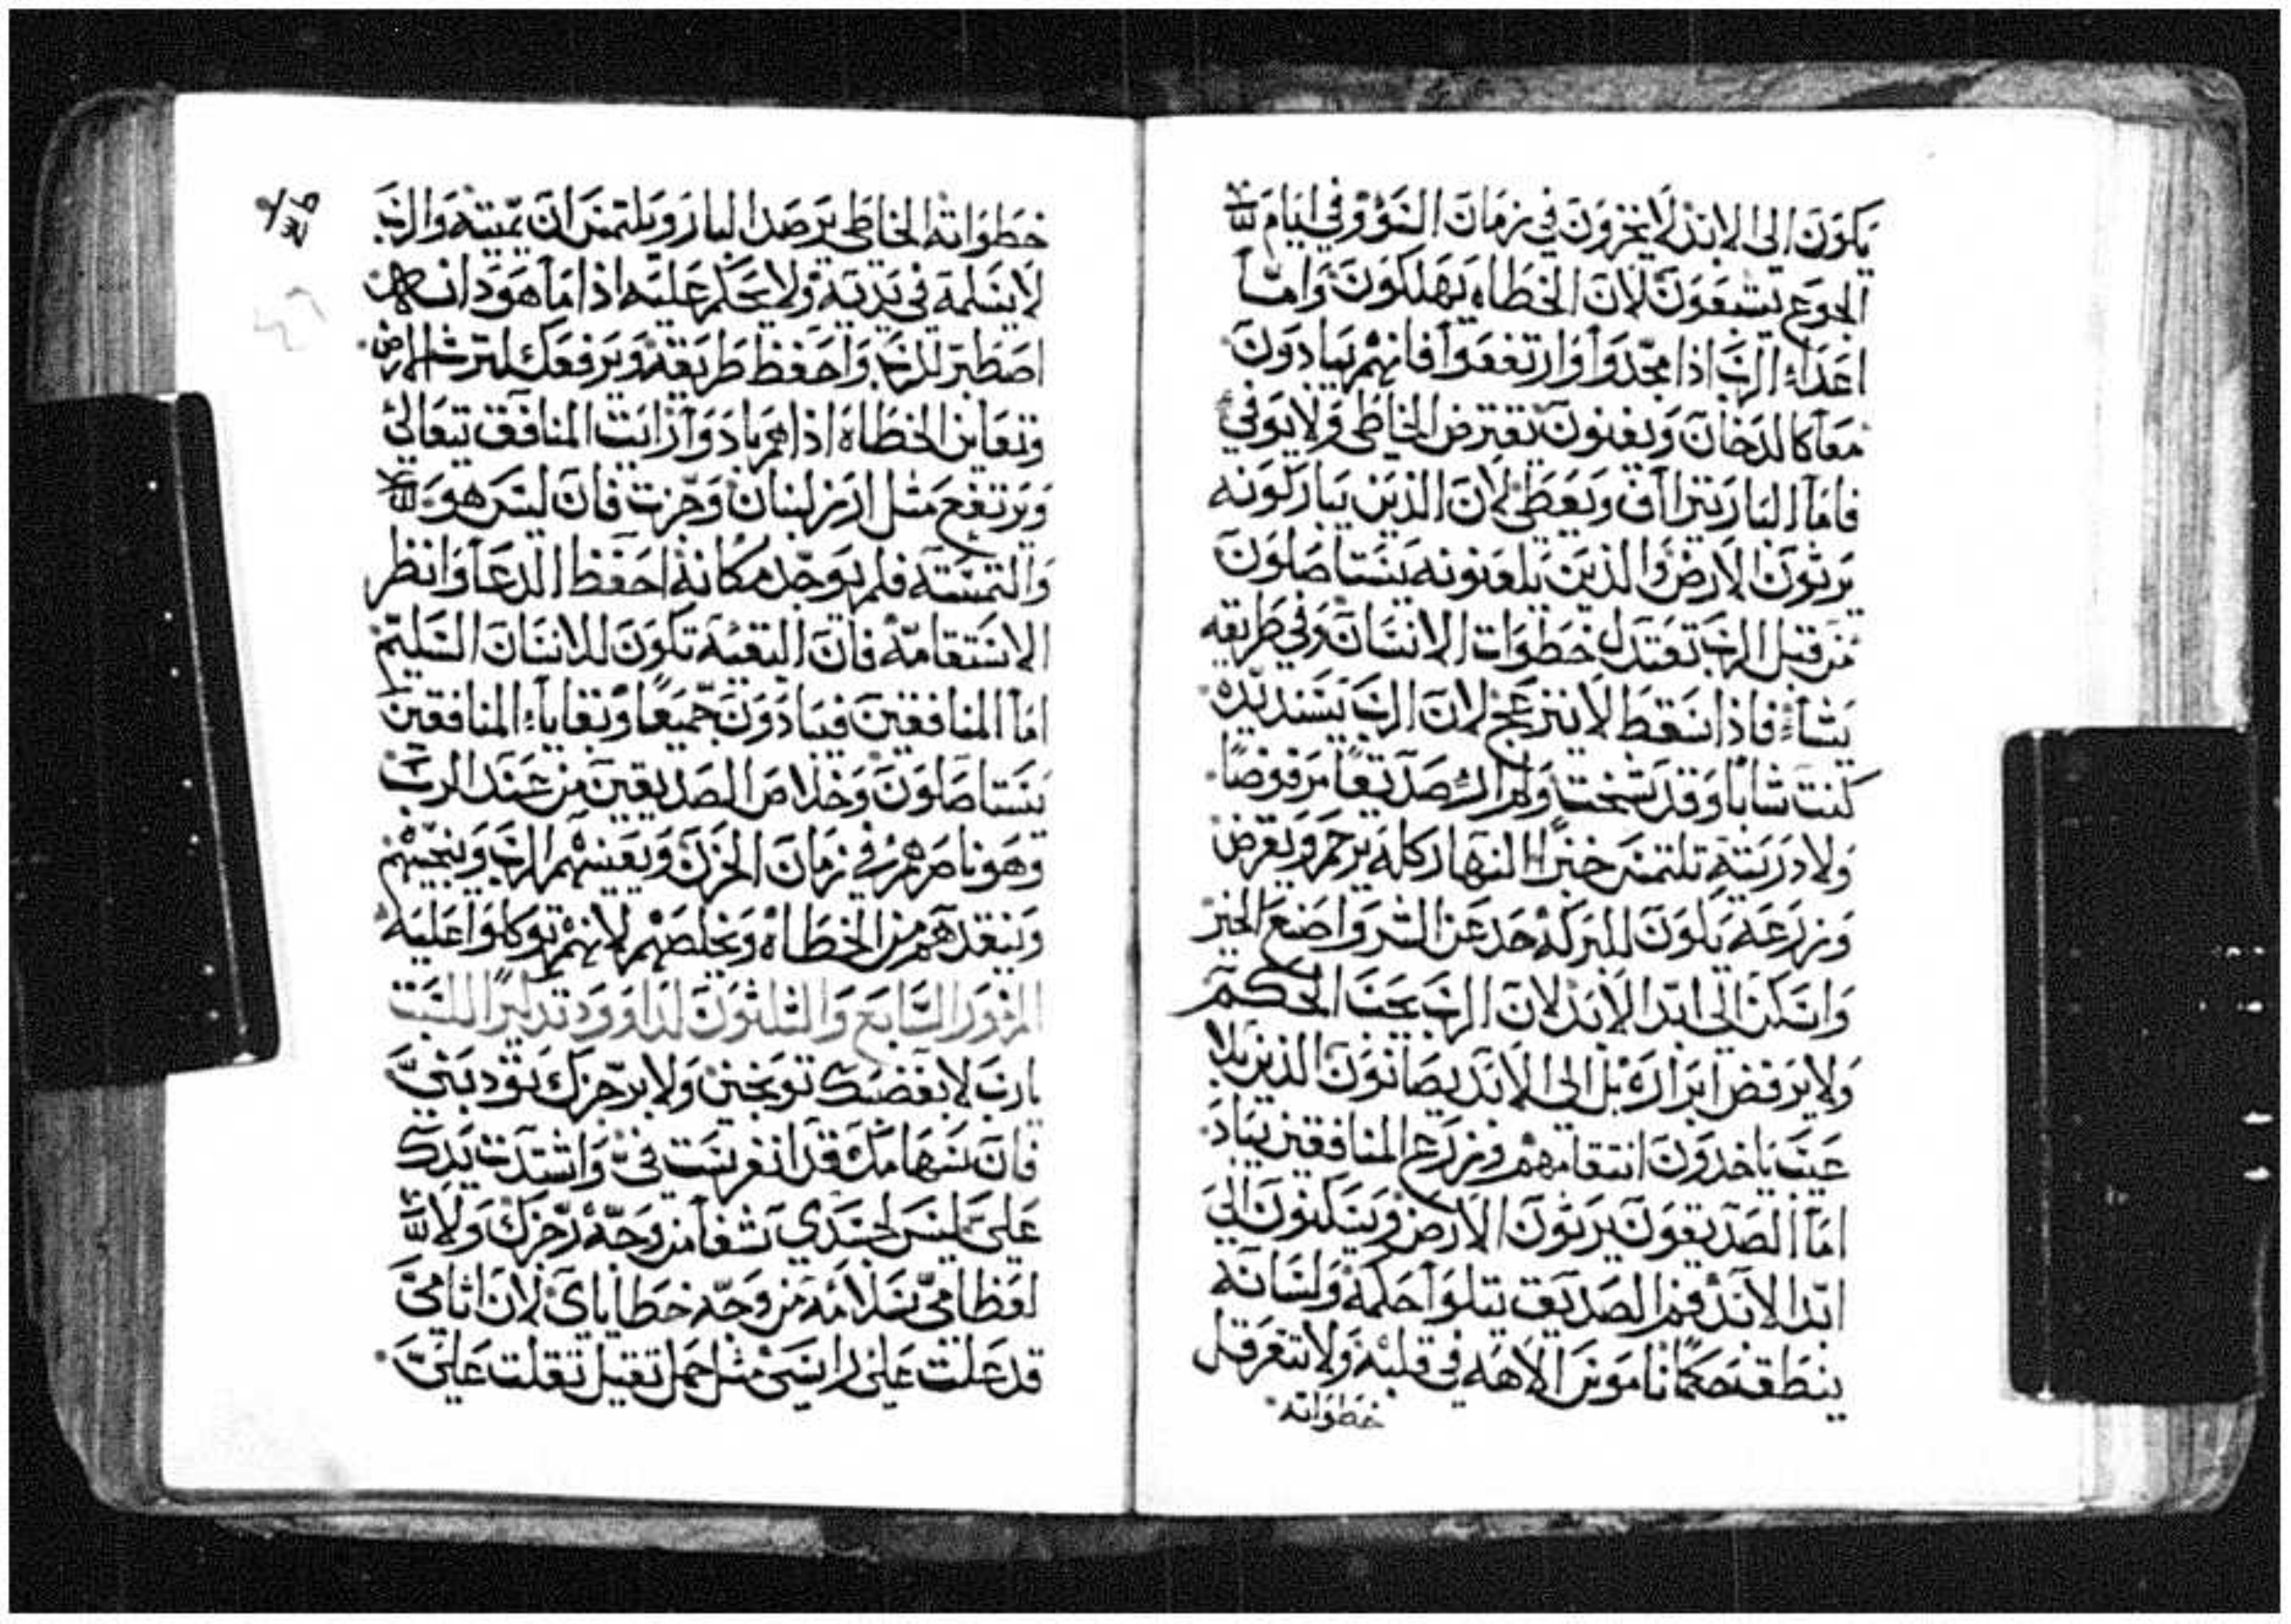 يكون الى الابد لا يخزون في زمان السؤ وفي ايام
الجوع يشبعون لان الخطاه يهلكون واما
اعداء الرب اذا مجدوا وارتفعوا فانهم يبادون
معا كالدخان ويفنون يقترض الخاطى ولا يوفي
فاما البار يتراآف ويعطى لان الذين يباركونه
يرثون الارض والذين يلعنونه يستاصلون
من قبل الرب تعتدل خطوات الانسان وفي طريقه
يشاء فاذا سقط لا ينزعج لان الرب يسند يده
كنت شابا وقد شخت ولم ار صديقا مرفوضا
ولا دريته تلتمس خبزا النهار كله يرحم ويقرض
وزرعه يكون للبركه حد عن الشر واصنع الخير
واسكن الى ابد الابد لان الرب يحب الحكم
ولا يرفض ابراره بل الى الابد يصانون الذين بلا
عيب ياخدون انتقامهم وزرع المنافقين يباد
اما الصديقون يرثون الارض ويسكنون الى
ابد الابد فم الصديق يتلوا حكمة ولسانه
ينطق حكما ناموس الاهه في قلبه ولا تتعرقل
خطواته
خطواته الخاطى يرصد البار ويلتمس ان يميته والرب
لا يسلمه في يديه ولا يحكم عليه اذا ما هو دانـه
اصطبر للرب واحفظ طريقه ويرفعك لترث الارض
وتعاين الخطاه اذا هم بادوا رايت المنافق يتعالى
ويرتفع مثل ارز لبنان وجزت فان ليس هو
والتمسته فلم يوجد مكانه احفظ الدعا وانظر
الاستقامه فان البقيه تكون للانسان السليم
اما المنافقين فيبادون جميعا وبقاياء المنافقين
يستاصلون وخلاص الصديقين من عند الرب
وهو ناصرهم في زمان الحزن ويعينهم الرب وينجيهم
وينقدهم من الخطاه ويخلصهم لانهم توكلوا عليه
المزمور السابع والثلثون لداوود تدكيرا للسبت
يارب لا بغضبك توبخني ولا برجزك تودبني
فان سهامك قد انغرست في واشتدت يدك
علي ليس لجسدي شفا من وجه رجزك ولا
لعظامي سلامه من وجه خطاياى لان اثامي
قد علت على راسي مثل حمل ثقيل ثقلت علي